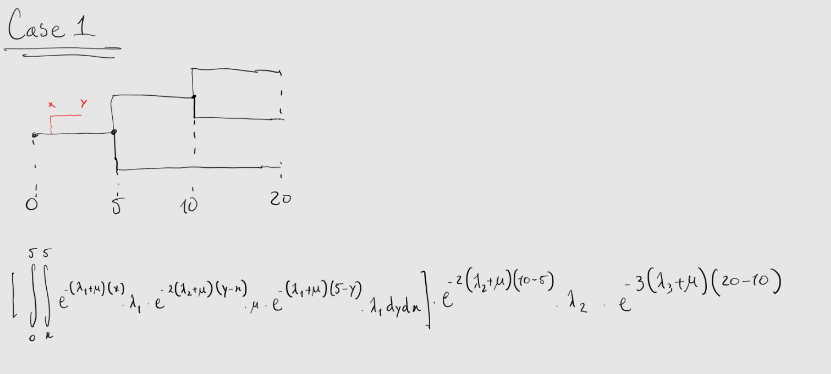 Case 1
x y
0 5 10 20
[∫₀⁵ ∫ₓ⁵ e^{-(λ₁+μ)(x)} · λ₁ · e^{-2(λ₂+μ)(y-x)} · μ · e^{-(λ₁+μ)(5-y)} · λ₁ dy dx] · e^{-2(λ₂+μ)(10-5)} · λ₂ · e^{-3(λ₃+μ)(20-10)}